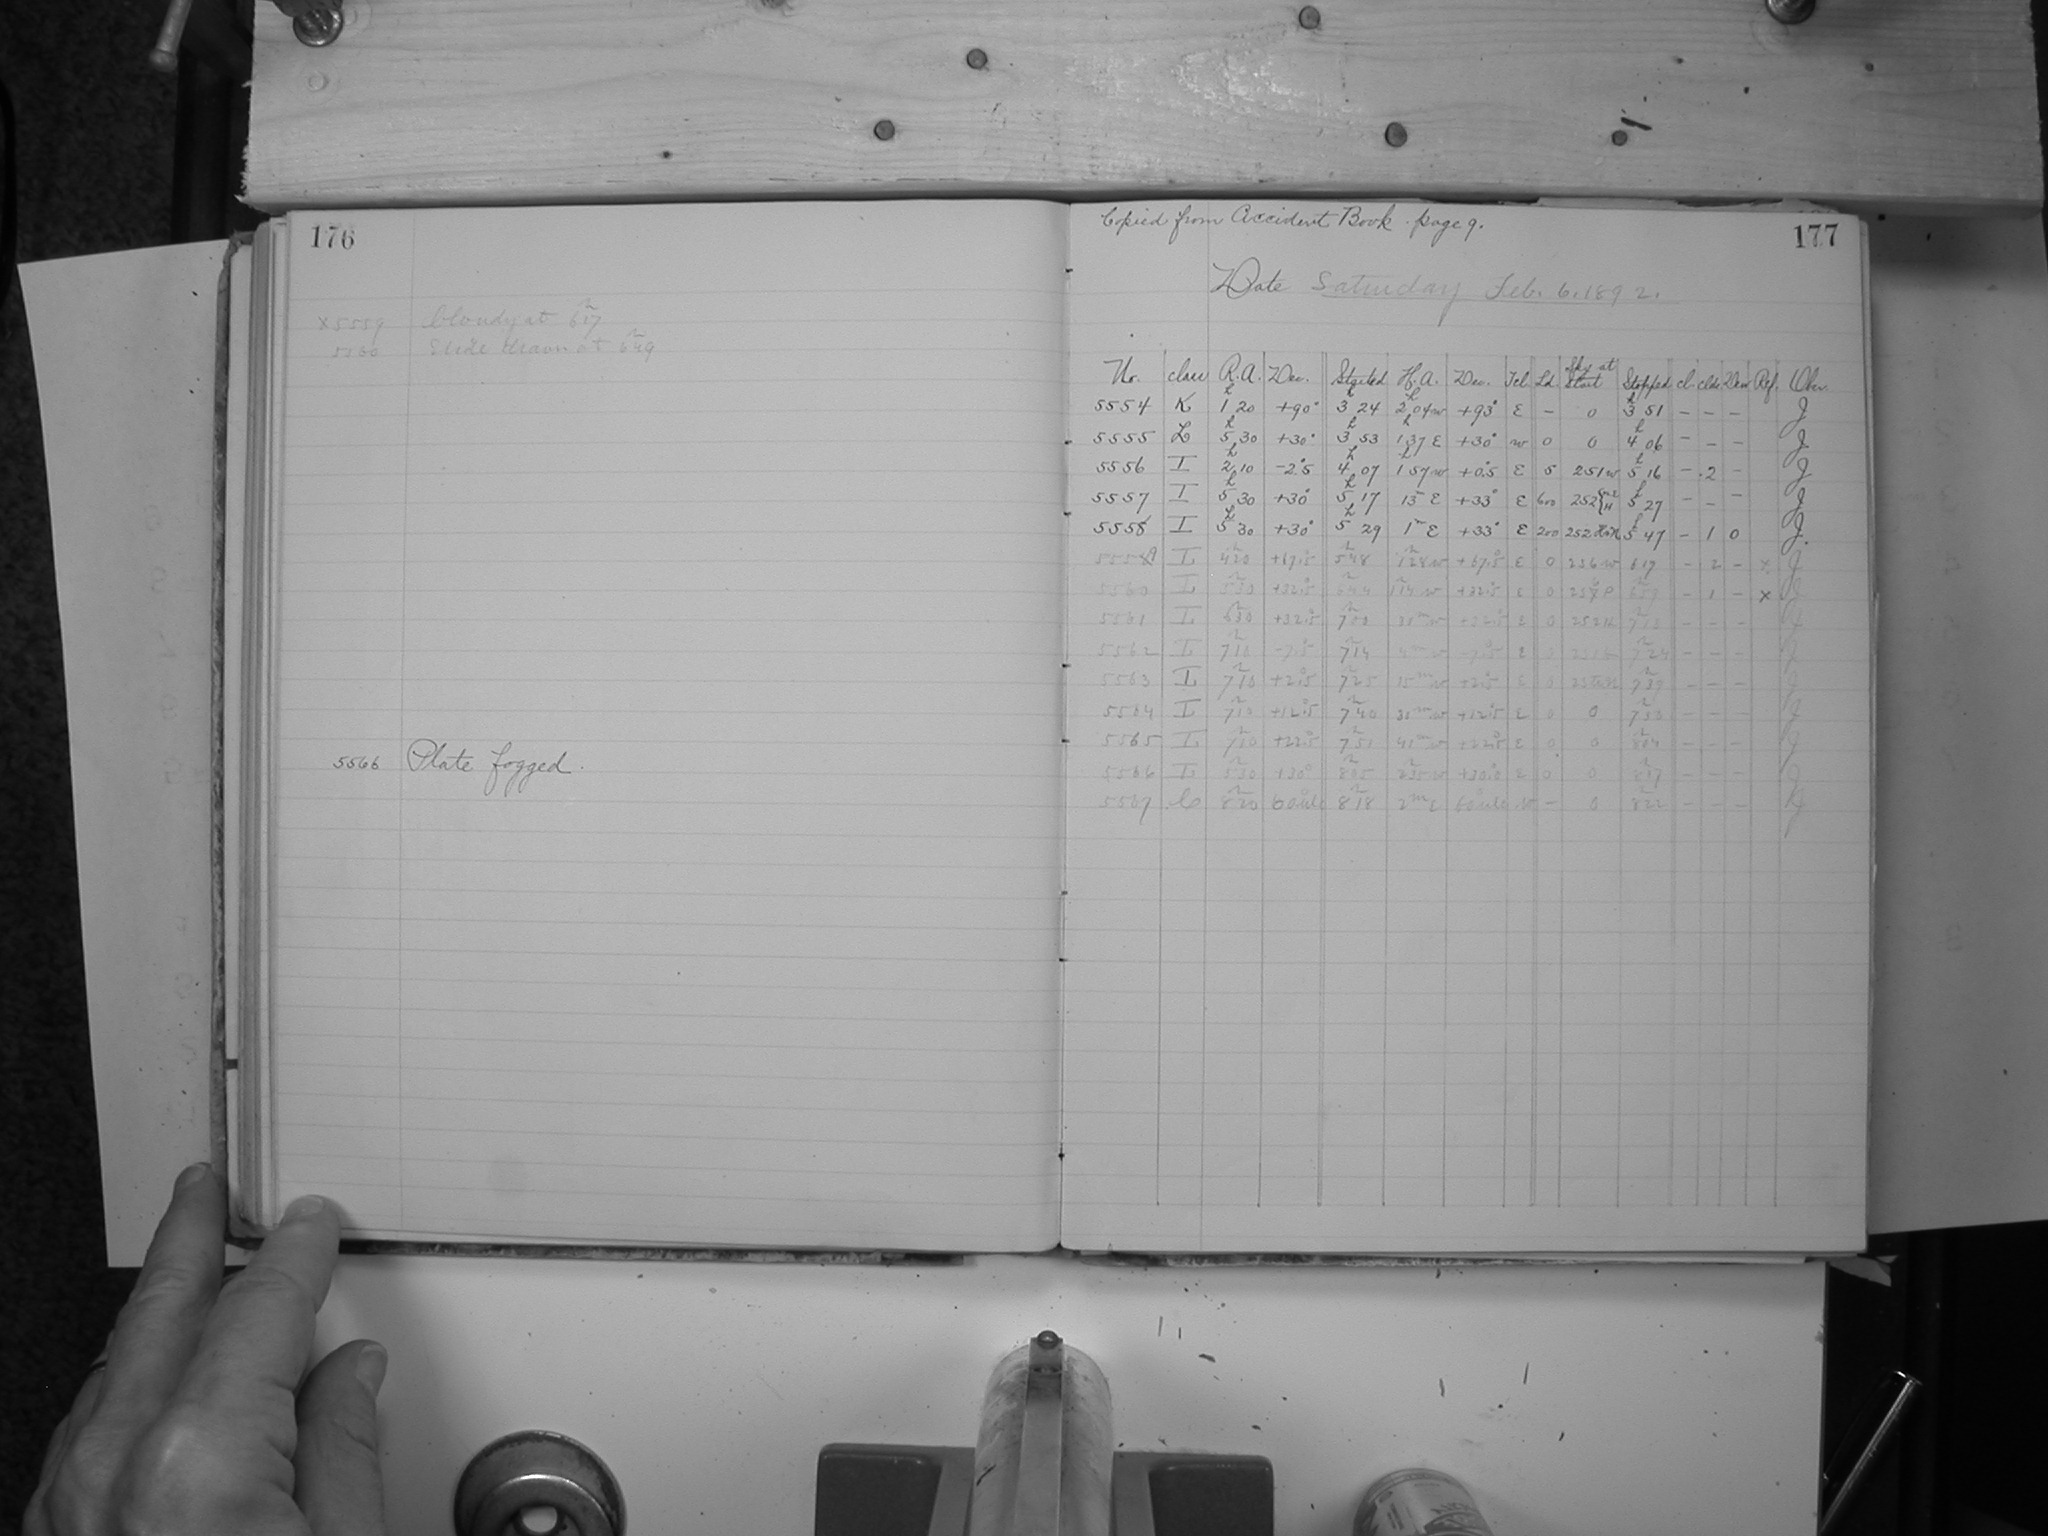 176
x5559 Cloudy at 6h17
5560 Slide drawn at 6h49
5566 Plate fogged.
Copied from Accident Book page 9.
177
Date Saturday Feb. 6. 1892.
No. Class R.A. Dec. Started H.A. Dec. Tel. Ld. Sky at Start Stopped cl. clds Dew Ref. Obs.
5554 K 1h 20 +90° 3h 24 2h 04 w +93° E - 0 3h 51 - - - J
5555 L 5h 30 +30° 3h 53 1h 37 E +30° w 0 0 4h 06 - - - J
5556 I 2h 10 -2°.5 4h 07 1h 57 w +0°.5 E 5 251 w 5h 16 - .2 - J
5557 I 5h 30 +30° 5h 17 13m E +33° E 600 252 5h 27 - - - J
5558 I 5h 30 +30° 5h 29 1m E +33° E 200 252 5h 47 - 1 0 J.
5559 I 4h20 +67°.5 5h48 1h28 w +67°.5 E 0 236 w 6 17 - 2 - x J
5560 I 5h30 +32°.5 6h44 1h14 w +32°.5 E 0 6h59 - 1 - x J
5561 I 6h30 +32°.5 7h00 30m w +32°.5 E 0 252 H 7h13 - - - J
5562 I 7h10 -7°.5 7h14 4m w -7°.5 E 0 7h24 - - - J
5563 I 7h10 +2°.5 7h25 15m w +2°.5 E 0 7h39 - - - J
5564 I 7h10 +12°.5 7h40 30m w +12°.5 E 0 0 7h50 - - - J
5565 I 7h10 +22°.5 7h51 41m w +22°.5 E 0 0 8h04 - - - J
5566 I 5h30 +30° 8h05 2h35 w +30°.0 E 0 0 8h17 - - - J
5567 C 8h20 8h18 2m E w - 0 8h22 - - - J